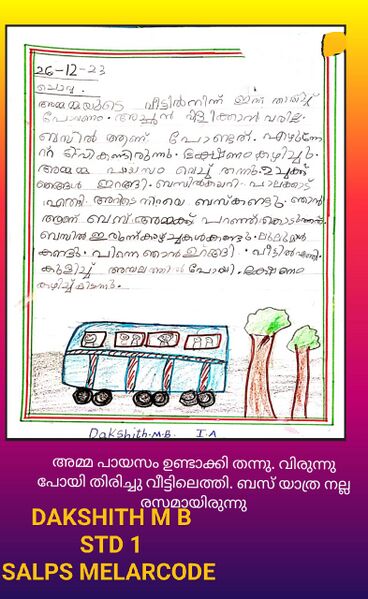 26-12-23
ചൊവ്വ.
അമ്മമ്മയുടെ വീട്ടിൽ നിന്ന് ഇന്ന്
പോകണം. അച്ഛൻ വിളിക്കാൻ വരില്ല.
ബസിൽ ആണ് പോണ്ടത്.
ടിവി കണ്ടിരുന്നു. ഭക്ഷണം കഴിച്ചു.
അമ്മമ്മ പായസം വെച്ച് തന്നു. ഉച്ചക്ക്
ഞങ്ങൾ ഇറങ്ങി. ബസിൽ കയറി. പാലക്കാട്
എത്തി. അവിടെ നിറയെ ബസ് കണ്ടു. ഞാൻ
ആണ് ബസ് അമ്മക്ക് പറഞ്ഞ് കൊടുത്തത്.
ബസിൽ ഇരുന്ന് കാഴ്ച്ചകൾ കണ്ടു. ലുലുമാൾ
കണ്ടു. പിന്നെ ഞാൻ ഉറങ്ങി. വീട്ടിൽ എത്തി
കുളിച്ച് അമ്പലത്തിൽ പോയി. ഭക്ഷണം
കഴിച്ച് കിടന്നു.
Dakshith.M.B. I.A
അമ്മ പായസം ഉണ്ടാക്കി തന്നു. വിരുന്നു
പോയി തിരിച്ചു വീട്ടിലെത്തി. ബസ് യാത്ര നല്ല
രസമായിരുന്നു
DAKSHITH M B
STD 1
SALPS MELARCODE